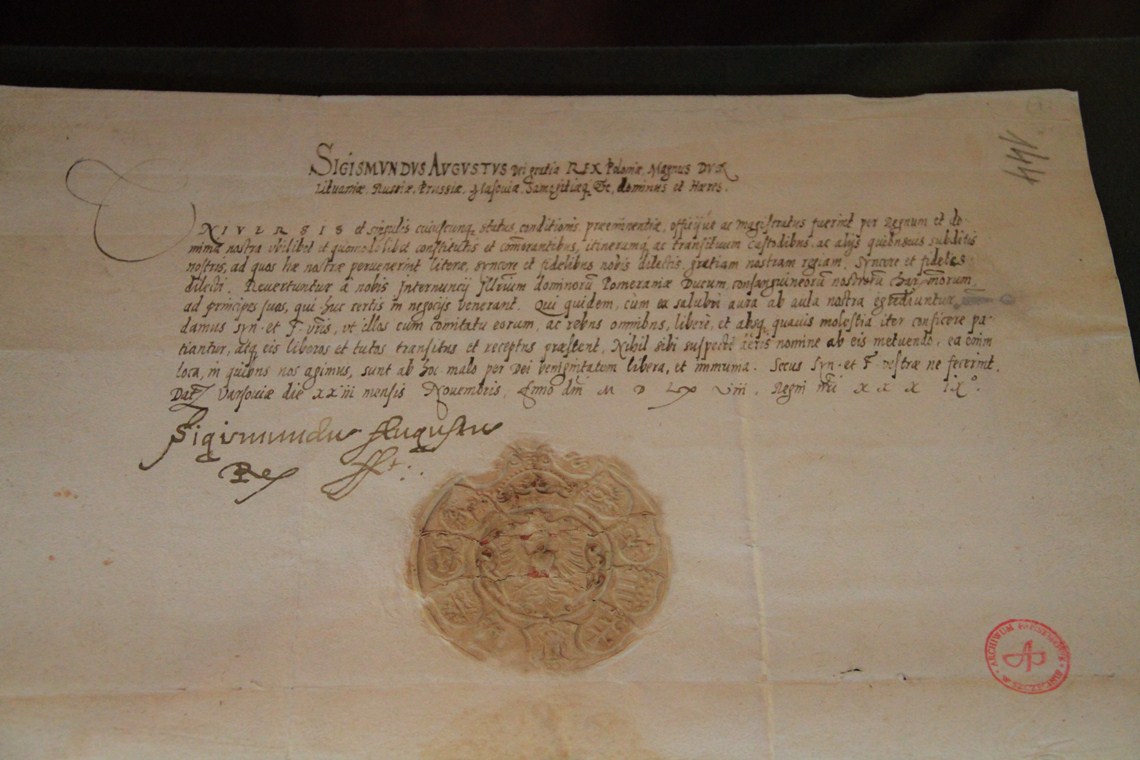 144
SIGISMVNDVS AVGVSTVS Dei gratia REX Poloniæ, Magnus DVX
Lituaniæ, Russiæ, Prussiæ, Masoviæ, Samogitiæq, &c, dominus et Hæres.
VNIVERSIS et singulis cuiuscunq status conditionis preeminentiæ, officijque ac magistratus fuerint per Regnum et do-
minia nostra vbilibet et quomodolibet constitutis et comorantibus, itinerumq ac transituum custodibus, ac alijs quibusuis subditis
nostris, ad quos hæ nostræ peruenerint literæ, syncere et fidelibus nobis dilectis, gratiam nostram regiam. Syncere et fideles
dilecti. Reuertuntur a nobis Internuncij Illrium dominorũ Pomeraniæ Ducum, consanguineorũ nostrorũ charissimorum,
ad principes suos, qui huc certis in negocijs venerant. Qui quidem, cum ex salubri aura ab aula nostra egrediuntur,
damus Syn. et F. vris, vt illos cum comitatu eorum, ac rebus omnibus, libere, et absq quauis molestia iter conficere pa-
tiantur, atq eis liberos et tutos transitus et receptus præstent, Nihil sibi suspecte aëris nomine ab eis metuendo, ea enim
loca, in quibus nos agimus, sunt ab hoc malo per Dei benignitatem libera, et immuna. Secus Syn. et F. vestræ ne fecerint.
Dat Varsouiæ die xxiii mensis Nouembris, Anno dni M D LX viii. Regni nri XXX IX°.
Sigismundus Augustus
Rex sst.
ARCHIWUM PAŃSTWOWE
AP